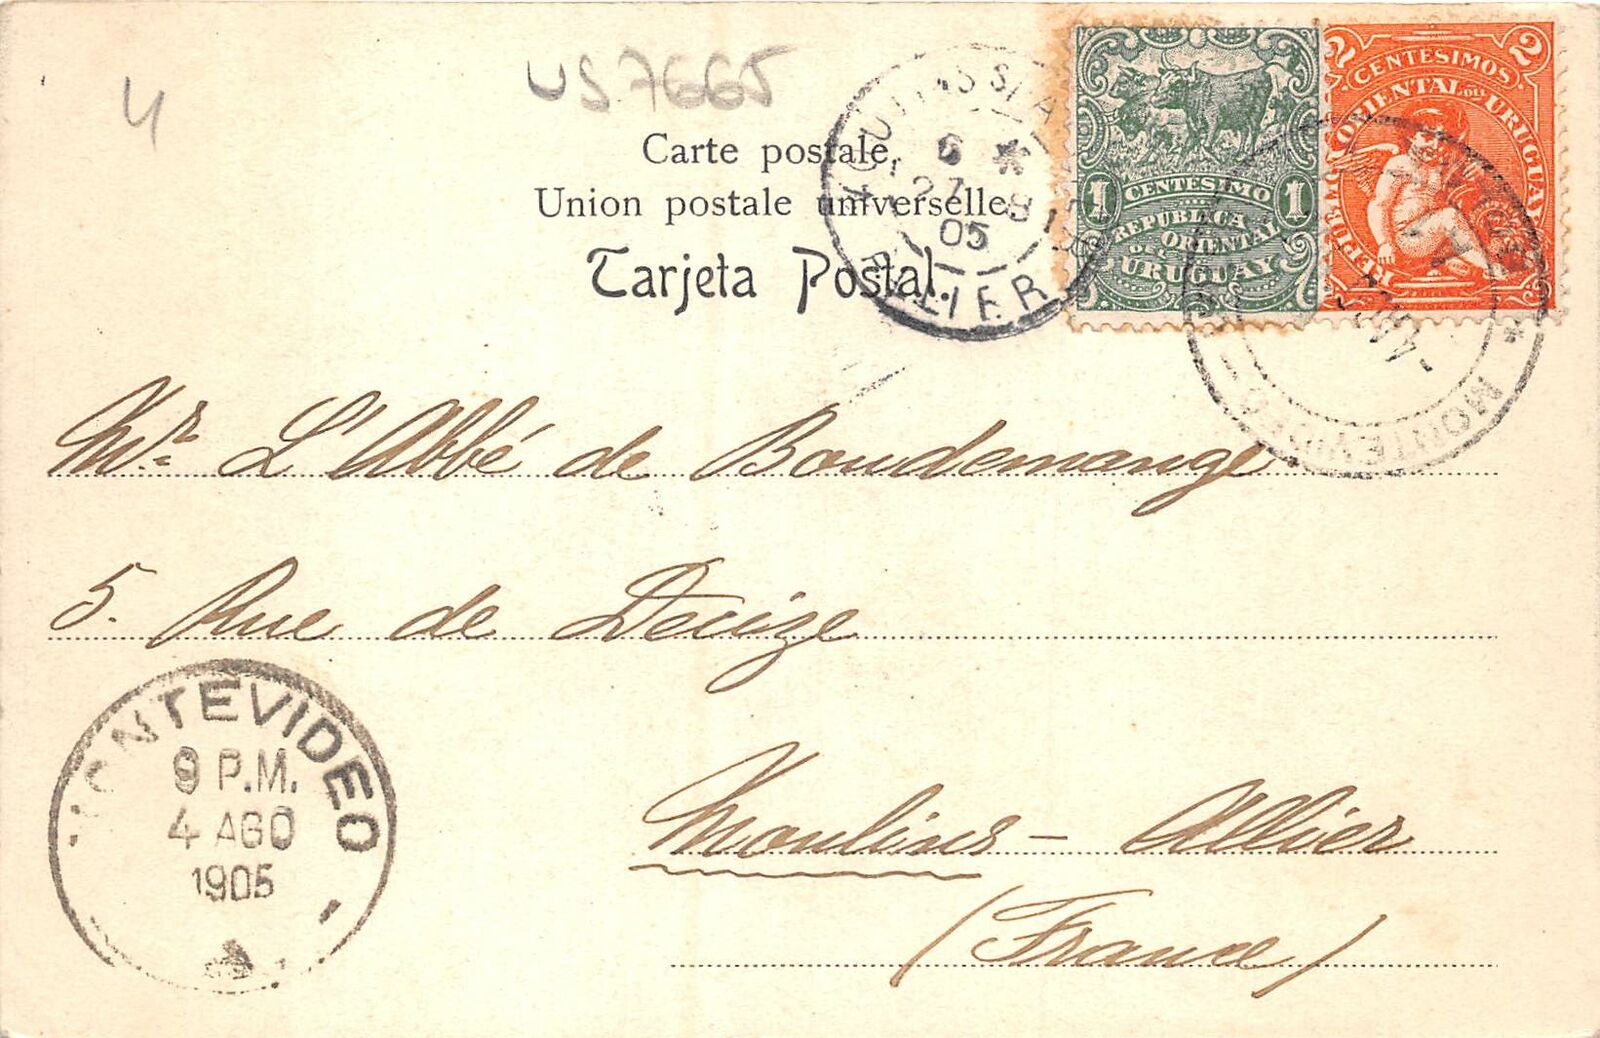 US7665
4
Carte postale.
Union postale universelle
Tarjeta Postal.
1 1
CENTESIMO
REPUBLICA
ORIENTAL
DEL
URUGUAY
2 2
CENTESIMOS
REPUB. ORIENTAL DEL URUGUAY
ALLIER
27 8
05
MONTEVIDEO
Mr. L'Abbé de Boudemange
5. Rue de Decize
Moulins - Allier
(France)
MONTEVIDEO
9 P.M.
4 AGO
1905